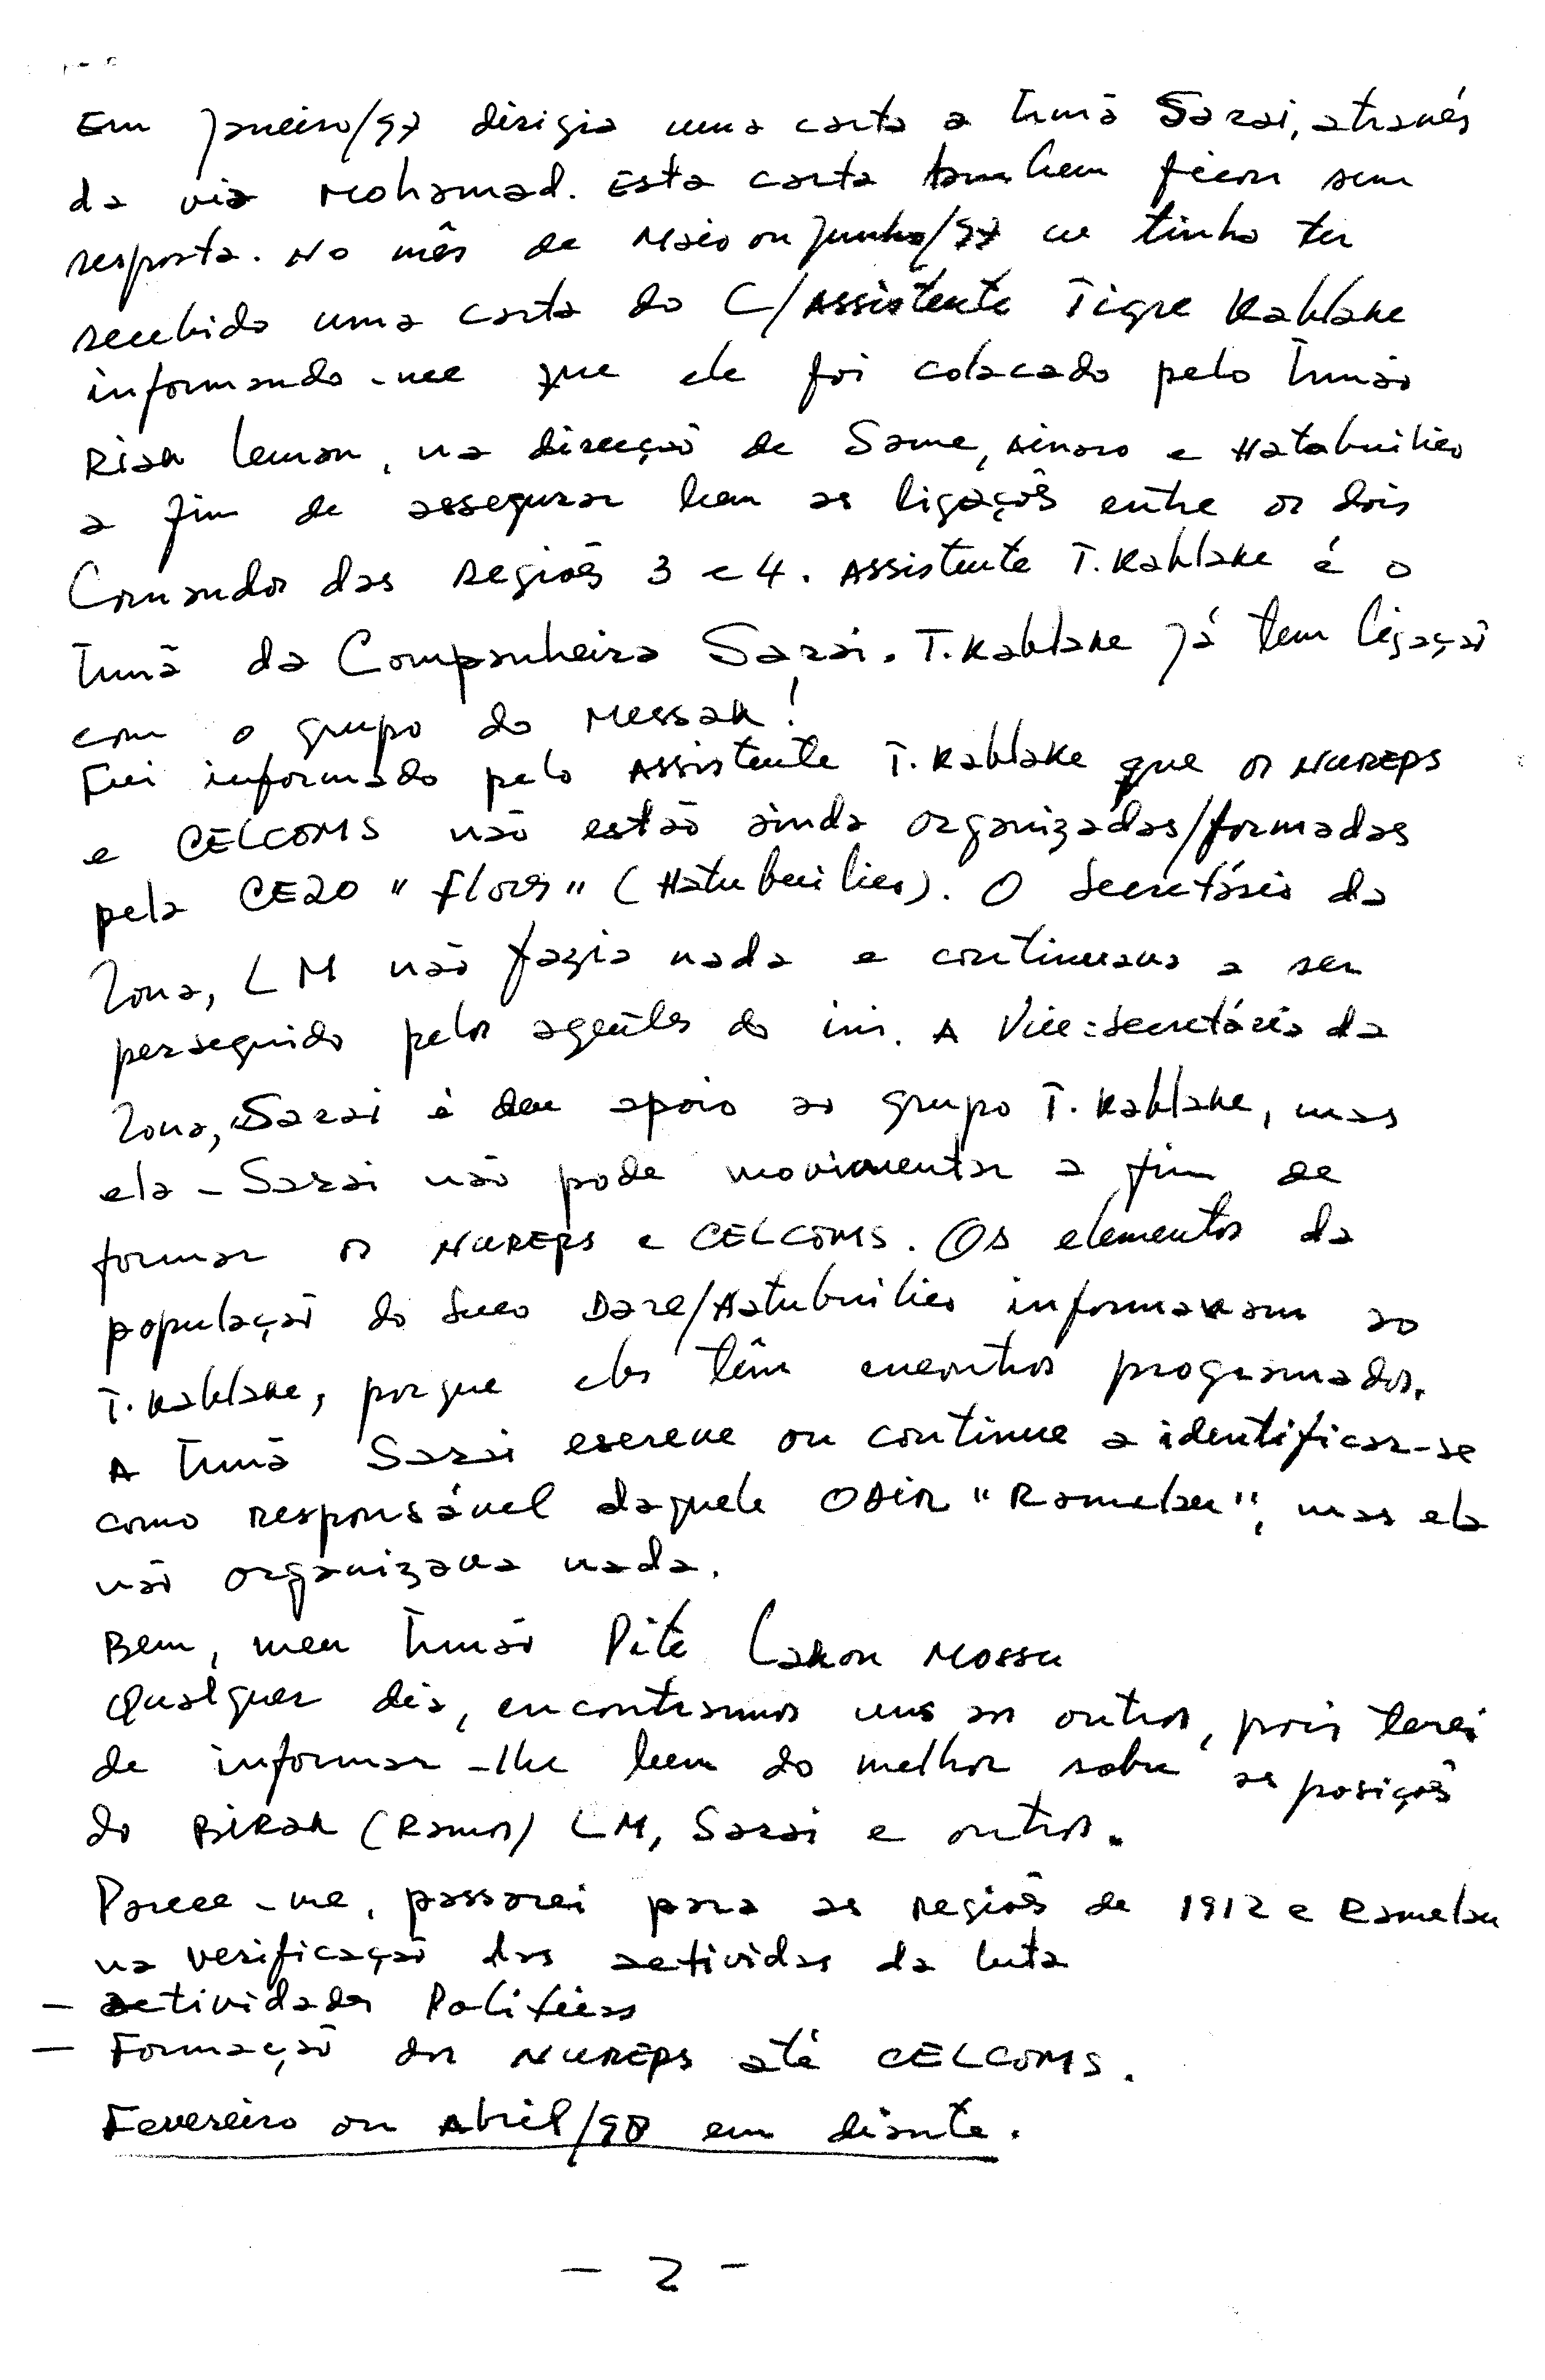 Em Janeiro/97 dirigia uma carta a Irmã Sarai, através
da via Mohamad. Esta carta tambem ficou sem
resposta. No mês de Maio ou Junho/97 eu tinha ter
recebido uma carta do C/Assistente Tigre Kablake
informando-me que ele foi colacado pelo Irmão
Riak Leman, na direcção de Same, Ainaro e Hatabuilico
a fim de assegurar bem as ligações entre os dois
Comandos das Regiões 3 e 4. Assistente T. Kablake é o
Irmã da Companheira Sarai. T. Kablake já tem ligação
com o grupo do Messak!
Fui informado pelo Assistente T. Kablake que os NUREPS
e CELCOMS não estão ainda organizadas/formadas
pela CEZO "Flores" (Hatubuilico). O Secretário da
Zona, LM não fazia nada e continuava a ser
perseguido pelos agentes do ini. A Vice=Secretária da
Zona, Sarai é deu apoio ao grupo T. Kablake, mas
ela - Sarai não pode movimentar a fim de
formar os NUREPS e CELCOMS. Os elementos da
população do Suco Dare/Hatubuilico informavam ao
T. Kablake, porque eles têm encontros programados.
A Irmã Sarai escreve ou continue a identificar-se
como responsável daquele ODIR "Ramelau", mas ela
não organizava nada.
Bem, meu Irmão Pité Lakon Mossu
Qualquer dia, encontramos uns aos outros, pois terei
de informar-lhe bem do melhor sobre as posições
do BIRAK (Ramos) LM, Sarai e outros.
Parece-me, passarei para as regiões de 1912 e Ramelau
na verificação das actividas da luta
- actividades Politicas
- Formação dos NUREPS até CELCOMS.
Fevereiro ou Abril/98 em diante.
- 2 -